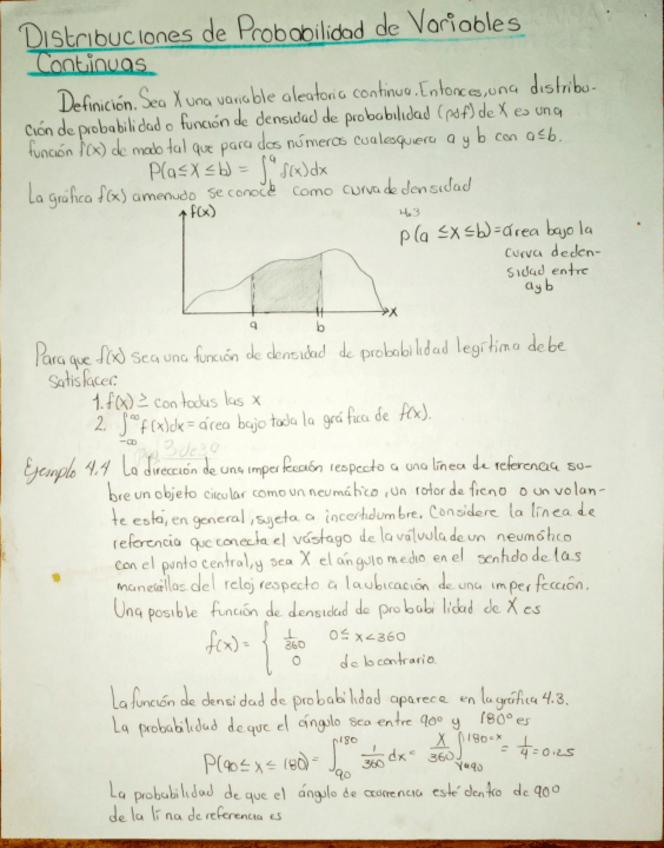 Distribuciones de Probabilidad de Variables
Continuas
Definición. Sea X una variable aleatoria continua. Entonces, una distribu-
ción de probabilidad o función de densidad de probabilidad (pdf) de X es una
función f(x) de modo tal que para dos números cualesquiera a y b con a≤b.
P(a≤X≤b) = ∫ᵇᵃ f(x)dx
La gráfica f(x) amenudo se conoce como curva de densidad
f(x)
4.3
P(a ≤X≤b)=área bajo la
curva de den-
sidad entre
a y b
X
a b
Para que f(x) sea una función de densidad de probabilidad legítima debe
satisfacer:
1. f(x) ≥ con todas las x
2. ∫ f(x)dx = área bajo toda la gráfica de f(x).
∞
-∞
Ejemplo 4.4 La dirección de una imperfección respecto a una línea de referencia so-
bre un objeto circular como un neumático, un rotor de freno o un volan-
te está, en general, sujeta a incertidumbre. Considere la línea de
referencia que conecta el vástago de la válvula de un neumático
con el punto central, y sea X el ángulo medio en el sentido de las
manecillas del reloj respecto a la ubicación de una imperfección.
Una posible función de densidad de probabilidad de X es
f(x) = { 1/360 0≤ x<360
0 de lo contrario.
La función de densidad de probabilidad aparece en la gráfica 4.3.
La probabilidad de que el ángulo sea entre 90° y 180° es
P(90≤ x ≤ 180) = ∫₉₀¹⁸⁰ 1/360 dx = x/360 ∫ 180=x x=90 = 1/4 = 0.25
La probabilidad de que el ángulo de ocorrencia esté dentro de 90°
de la línea de referencia es